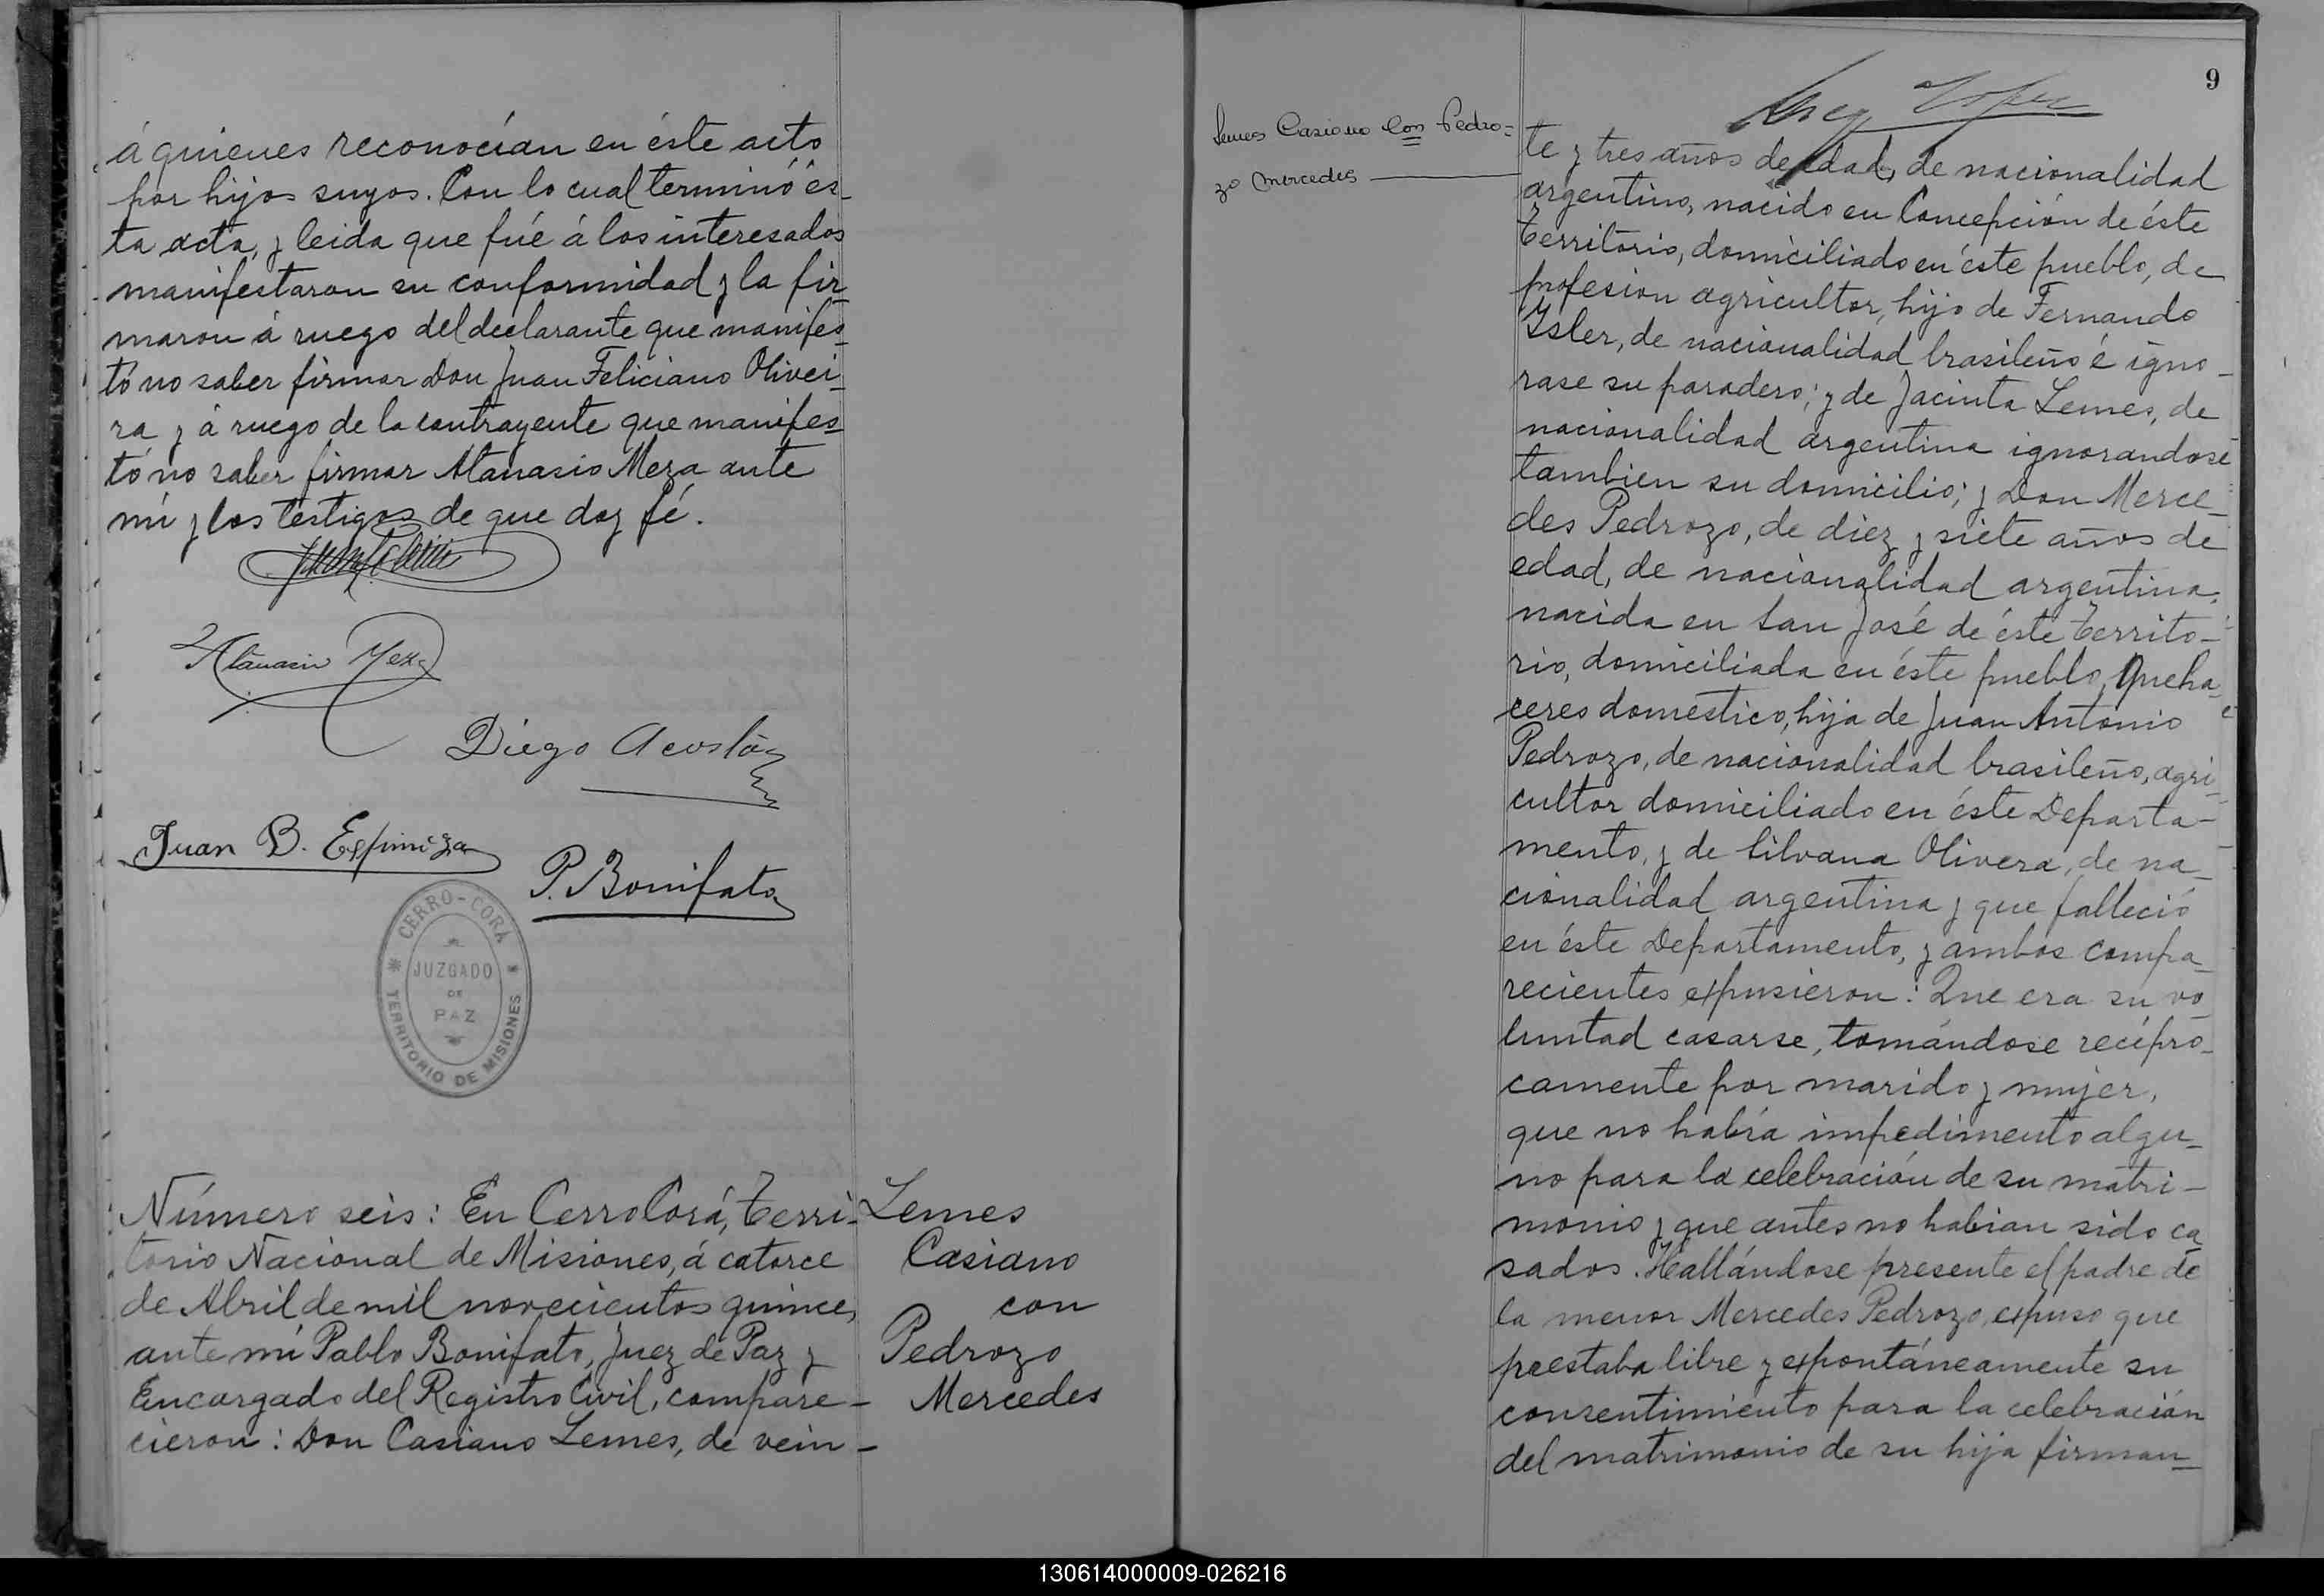 á quienes reconocían en éste acto
por hijos suyos. Con lo cual terminó és-
ta acta, y leida que fué á los interesados
manifestaron su conformidad y la fir-
maron á ruego del declarante que manifes-
tó no saber firmar Don Juan Feliciano Olivei-
ra y á ruego de la contrayente que manifes-
tó no saber firmar Atanasio Meza ante
mí y los testigos de que doy fé.
Atanacio Meza
Diego Acosta
Juan B. Espiniza
P. Bonifato
CERRO-CORÁ
JUZGADO
DE
PAZ
TERRITORIO DE MISIONES
Número seis: En Cerro Corá, Terri-
torio Nacional de Misiones, á catorce
de Abril de mil novecientos quince,
ante mí Pablo Bonifato, Juez de Paz y
Encargado del Registro Civil, compare-
cieron: Don Casiano Lemes, de vein-
Lemes
Casiano
con
Pedrozo
Mercedes
9
Lemes Casiano con Pedro=
zo Mercedes
te y tres años de edad, de nacionalidad
argentino, nacido en Concepción de éste
Territorio, domiciliado en éste pueblo, de
profesion agricultor, hijo de Fernando
Ysler, de nacionalidad brasileño é igno-
rase su paradero; y de Jacinta Lemes, de
nacionalidad argentina ignorandose
tambien su domicilio; y Don Merce-
des Pedrozo, de diez y siete años de
edad, de nacionalidad argentina,
nacida en San José de éste Territo-
rio, domiciliada en éste pueblo, Queha-
ceres doméstico, hija de Juan Antonio
Pedrozo, de nacionalidad brasileño, agri-
cultor domiciliado en éste Departa-
mento, y de Silvana Olivera, de na-
cionalidad argentina y que falleció
en éste Departamento, y ambos compa-
recientes expusieron: Que era su vo-
luntad casarse, tomándose recipro-
camente por marido y mujer,
que no había impedimento algu-
no para la celebración de su matri-
monio y que antes no habian sido ca-
sados. Hallándose presente el padre de
la menor Mercedes Pedrozo, expuso que
prestaba libre y expontáneamente su
consentimiento para la celebración
del matrimonio de su hija firman-
130614000009-026216